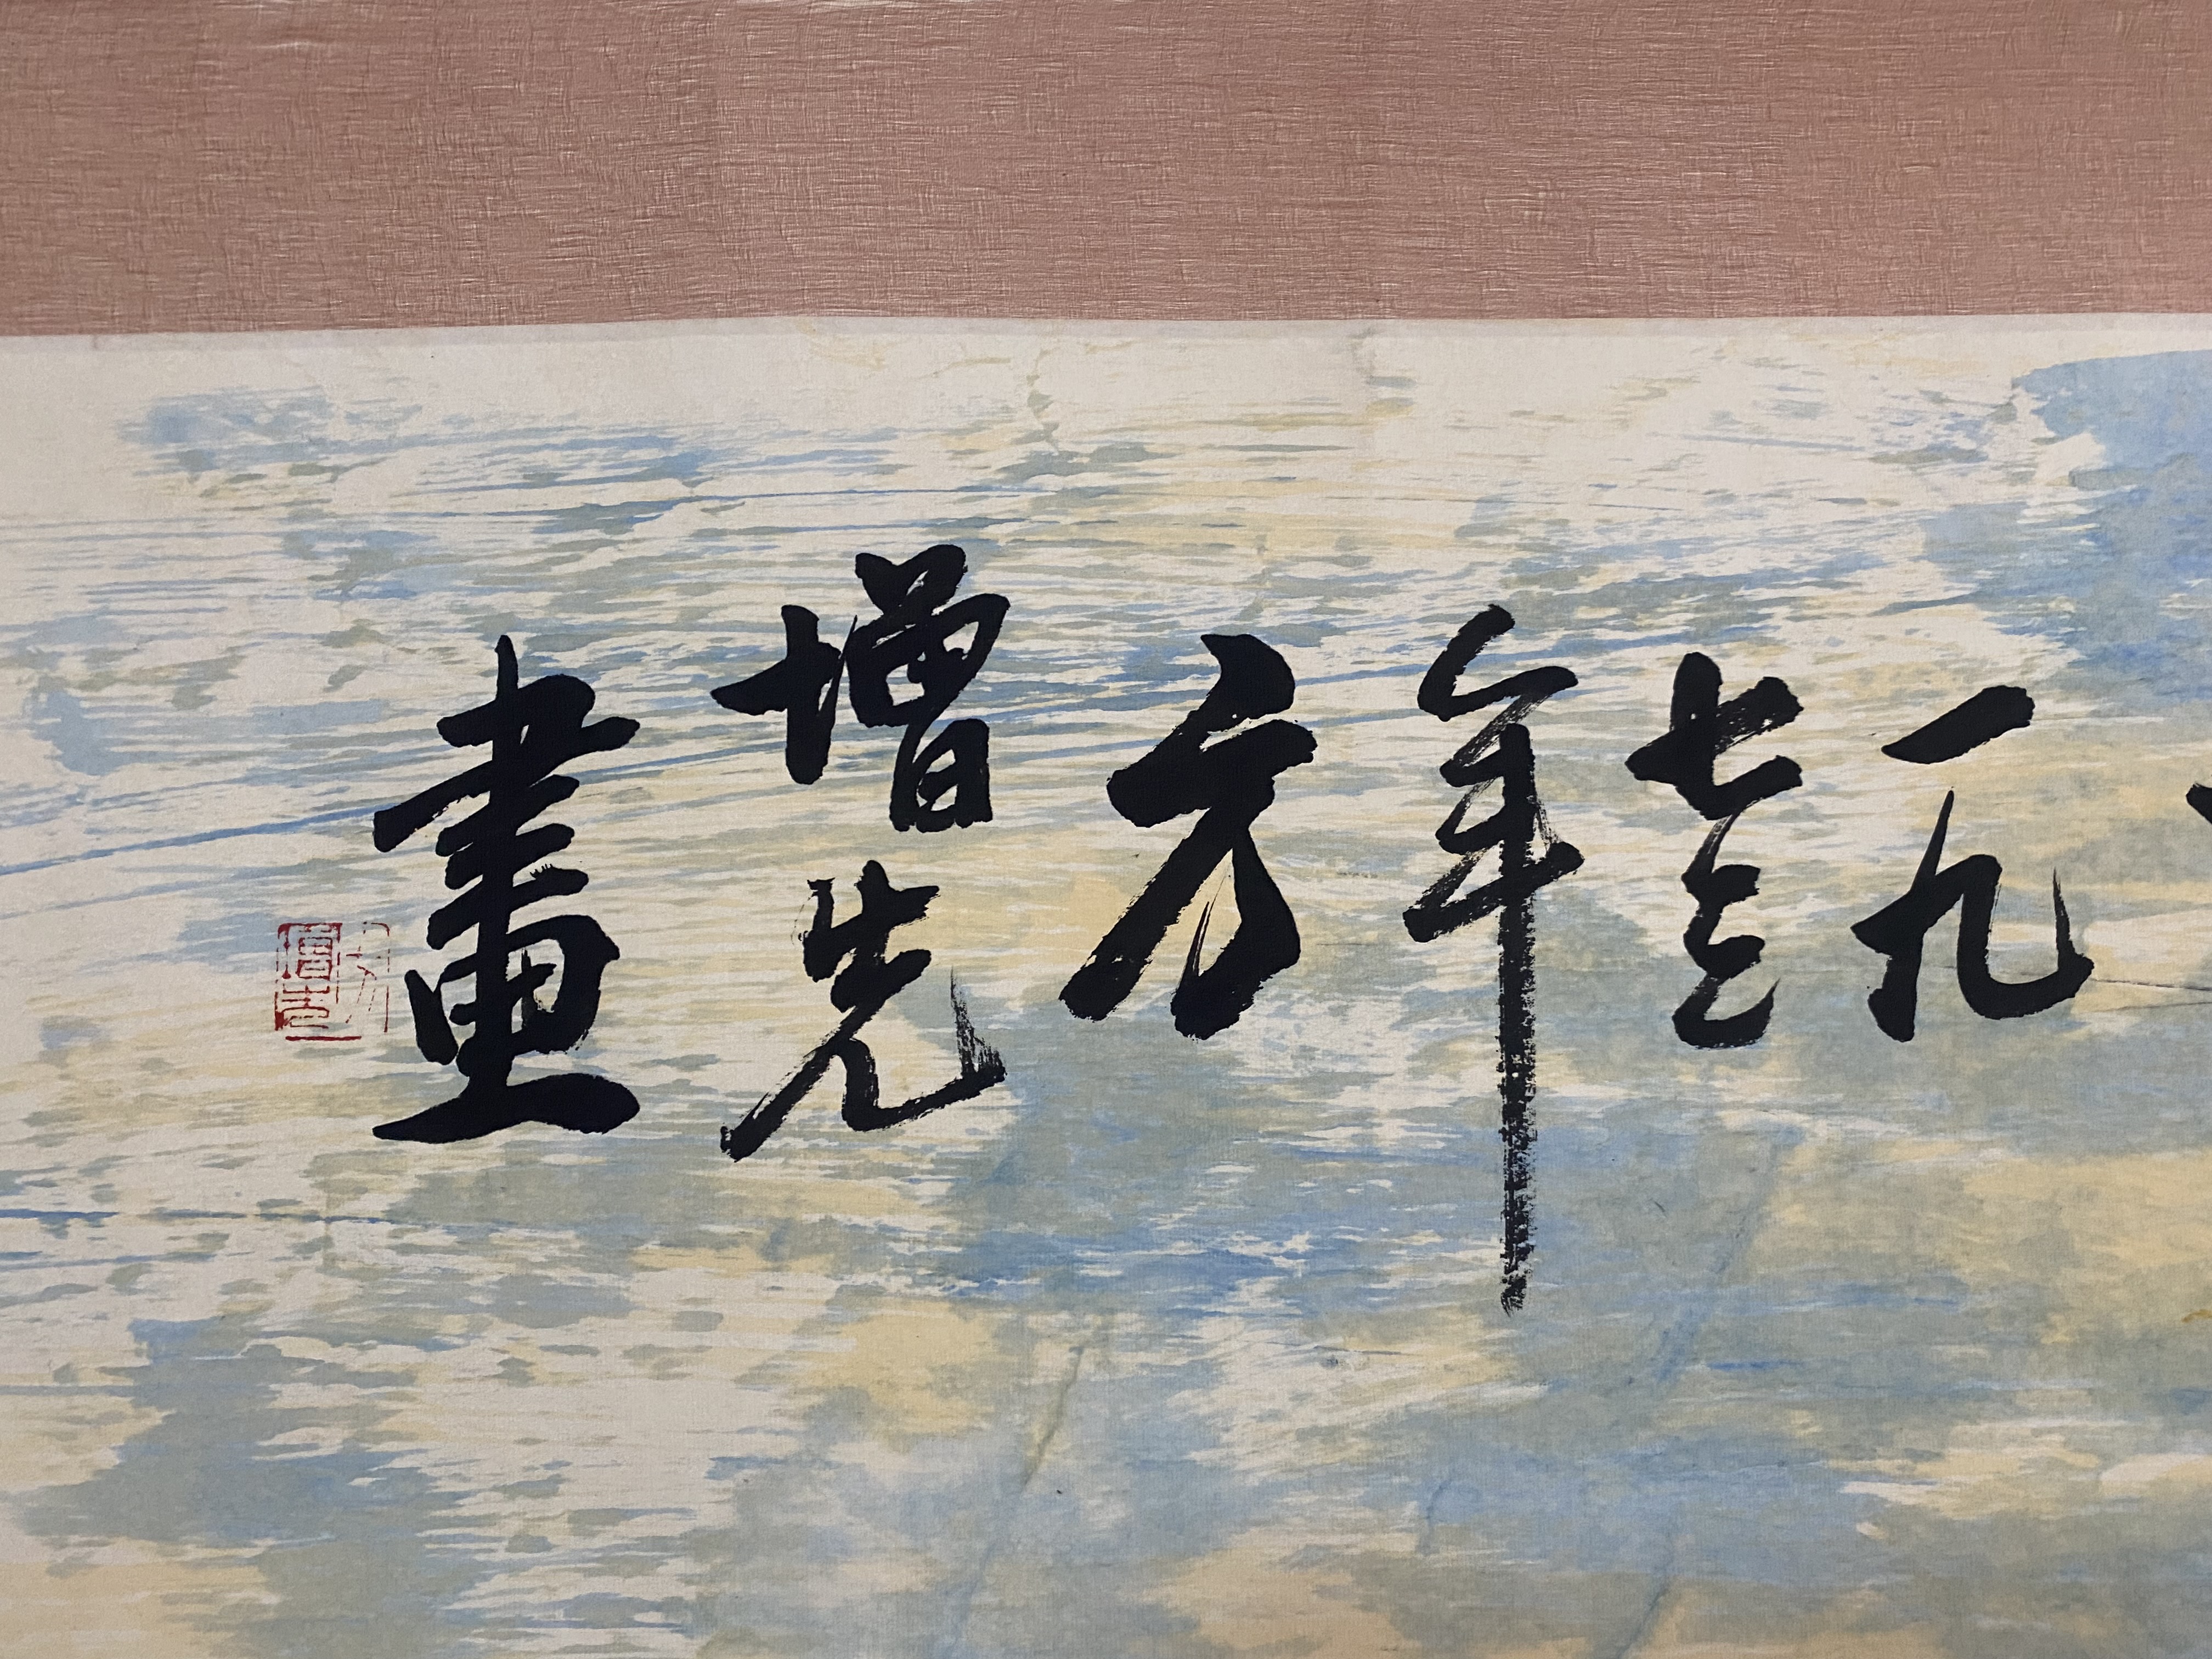 一九
七三
年
方
增先
畫